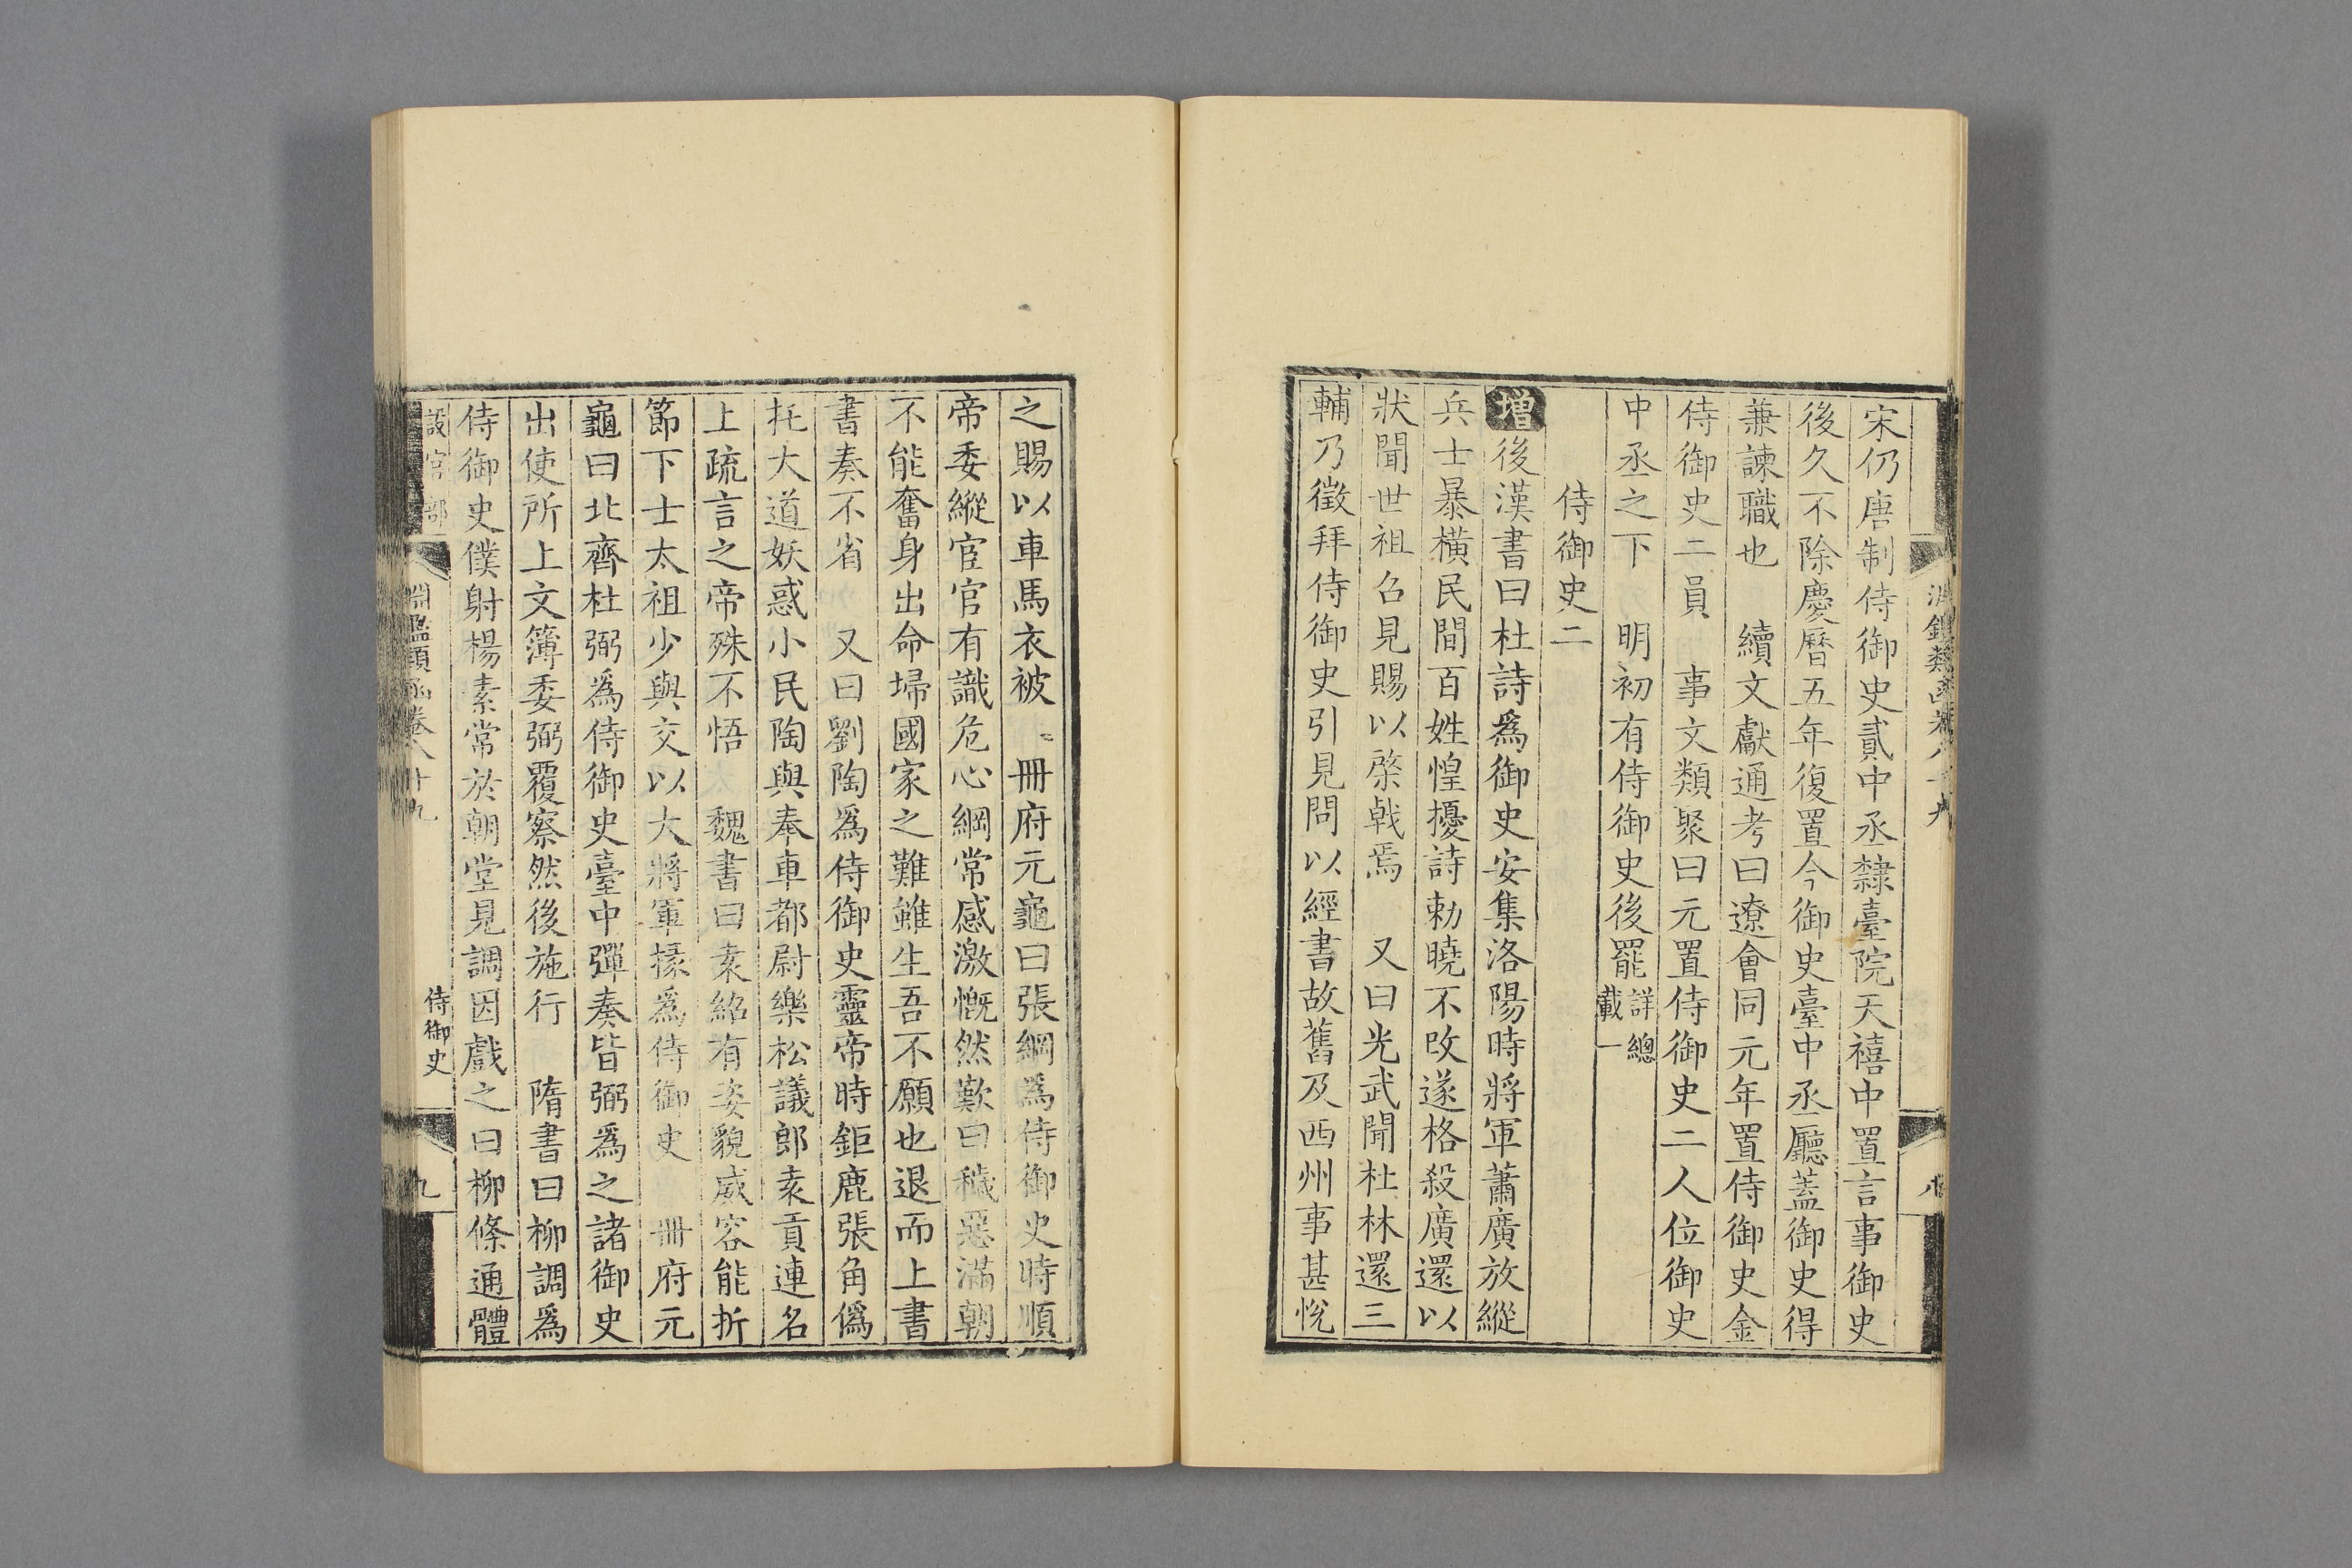 宋仍唐制侍御史貳中丞隸臺院天禧中置言事御史
後久不除慶曆五年復置今御史臺中丞廳蓋御史得
兼諫職也　續文獻通考曰遼會同元年置侍御史金
侍御史二員　事文類聚曰元置侍御史二人位御史
中丞之下　明初有侍御史後罷詳總載一
侍御史二
增後漢書曰杜詩爲御史安集洛陽時將軍蕭廣放縱
兵士暴橫民間百姓惶擾詩勅曉不改遂格殺廣還以
狀聞世祖召見賜以棨戟焉　又曰光武聞杜林還三
輔乃徵拜侍御史引見問以經書故舊及西州事甚悅
之賜以車馬衣被　冊府元龜曰張綱爲侍御史時順
帝委縱宦官有識危心綱常感激慨然歎曰穢惡滿朝
不能奮身出命埽國家之難雖生吾不願也退而上書
書奏不省　又曰劉陶爲侍御史靈帝時鉅鹿張角僞
托大道妖惑小民陶與奉車都尉樂松議郎袁貢連名
上疏言之帝殊不悟　魏書曰袁紹有姿貌威容能折
節下士太祖少與交以大將軍掾爲侍御史　冊府元
龜曰北齊杜弼爲侍御史臺中彈奏皆弼爲之諸御史
出使所上文簿委弼覆察然後施行　隋書曰柳調爲
侍御史僕射楊素常於朝堂見調因戲之曰柳條通體
設官部
淵鑑類函卷八十九
侍御史
九